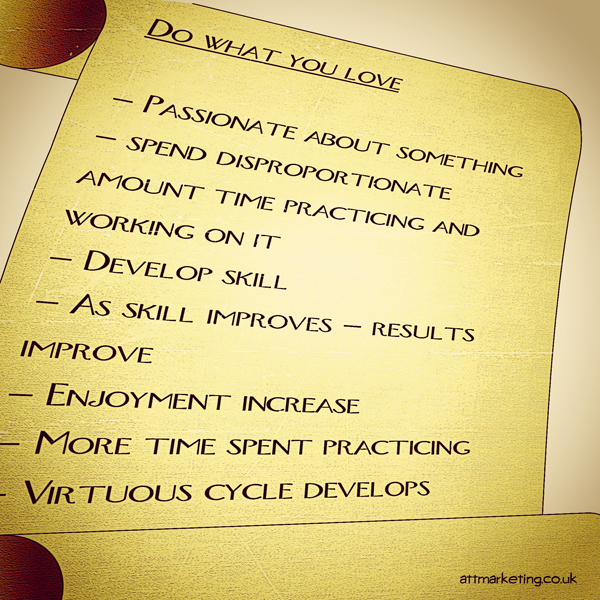 Do what you love
– Passionate about something
– spend disproportionate
amount time practicing and
working on it
– Develop skill
– As skill improves – results
improve
– Enjoyment increase
– More time spent practicing
– Virtuous cycle develops
attmarketing.co.uk